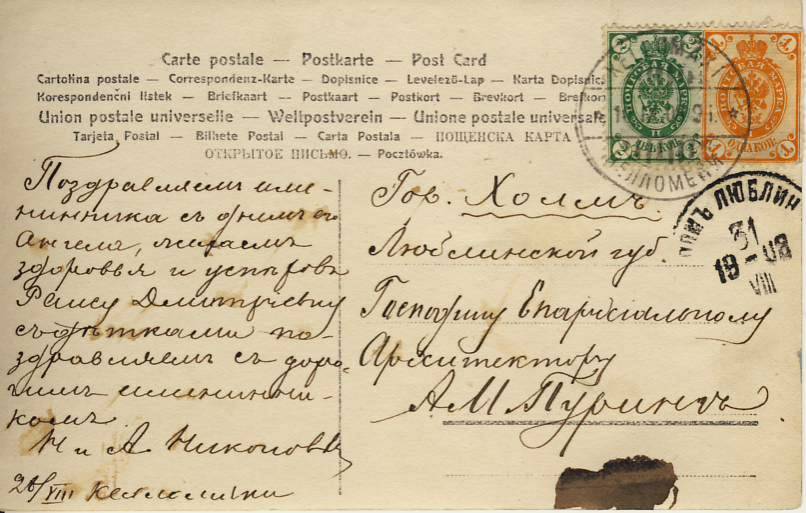 Carte postale — Postkarte — Post Card
Cartolina postale — Correspondenz-Karte — Dopisnice — Levelező-Lap — Karta Dopisnic
Korespondenční listek — Briefkaart — Postkaart — Postkort — Brevkort — Brefkor
Union postale universelle — Weltpostverein — Unione postale universale
Tarjeta Postal — Bilhete Postal — Carta Postala — ПОЩЕНСКА КАРТА
ОТКРЫТОЕ ПИСЬМО. — Pocztówka.
Поздравляемъ име-
нинника съ днемъ его
Ангела, желаемъ
здоровья и успѣховъ
Раису Дмитріевну
съ дѣтками по-
здравляемъ съ доро-
гимъ именинни-
комъ
Н и А Никоновы
26/VIII
Гор. Холмъ
Люблинской губ.
Господину Епархіальному
Архитектору
А М Пурингъ
2 2
ПОЧТОВАЯ МАРКА
ДВѢ КОП.
2 2
1 1
ПОЧТОВАЯ МАРКА
ОДНА КОП.
1 1
ЛЮБЛИН
31
19 – 08
VIII